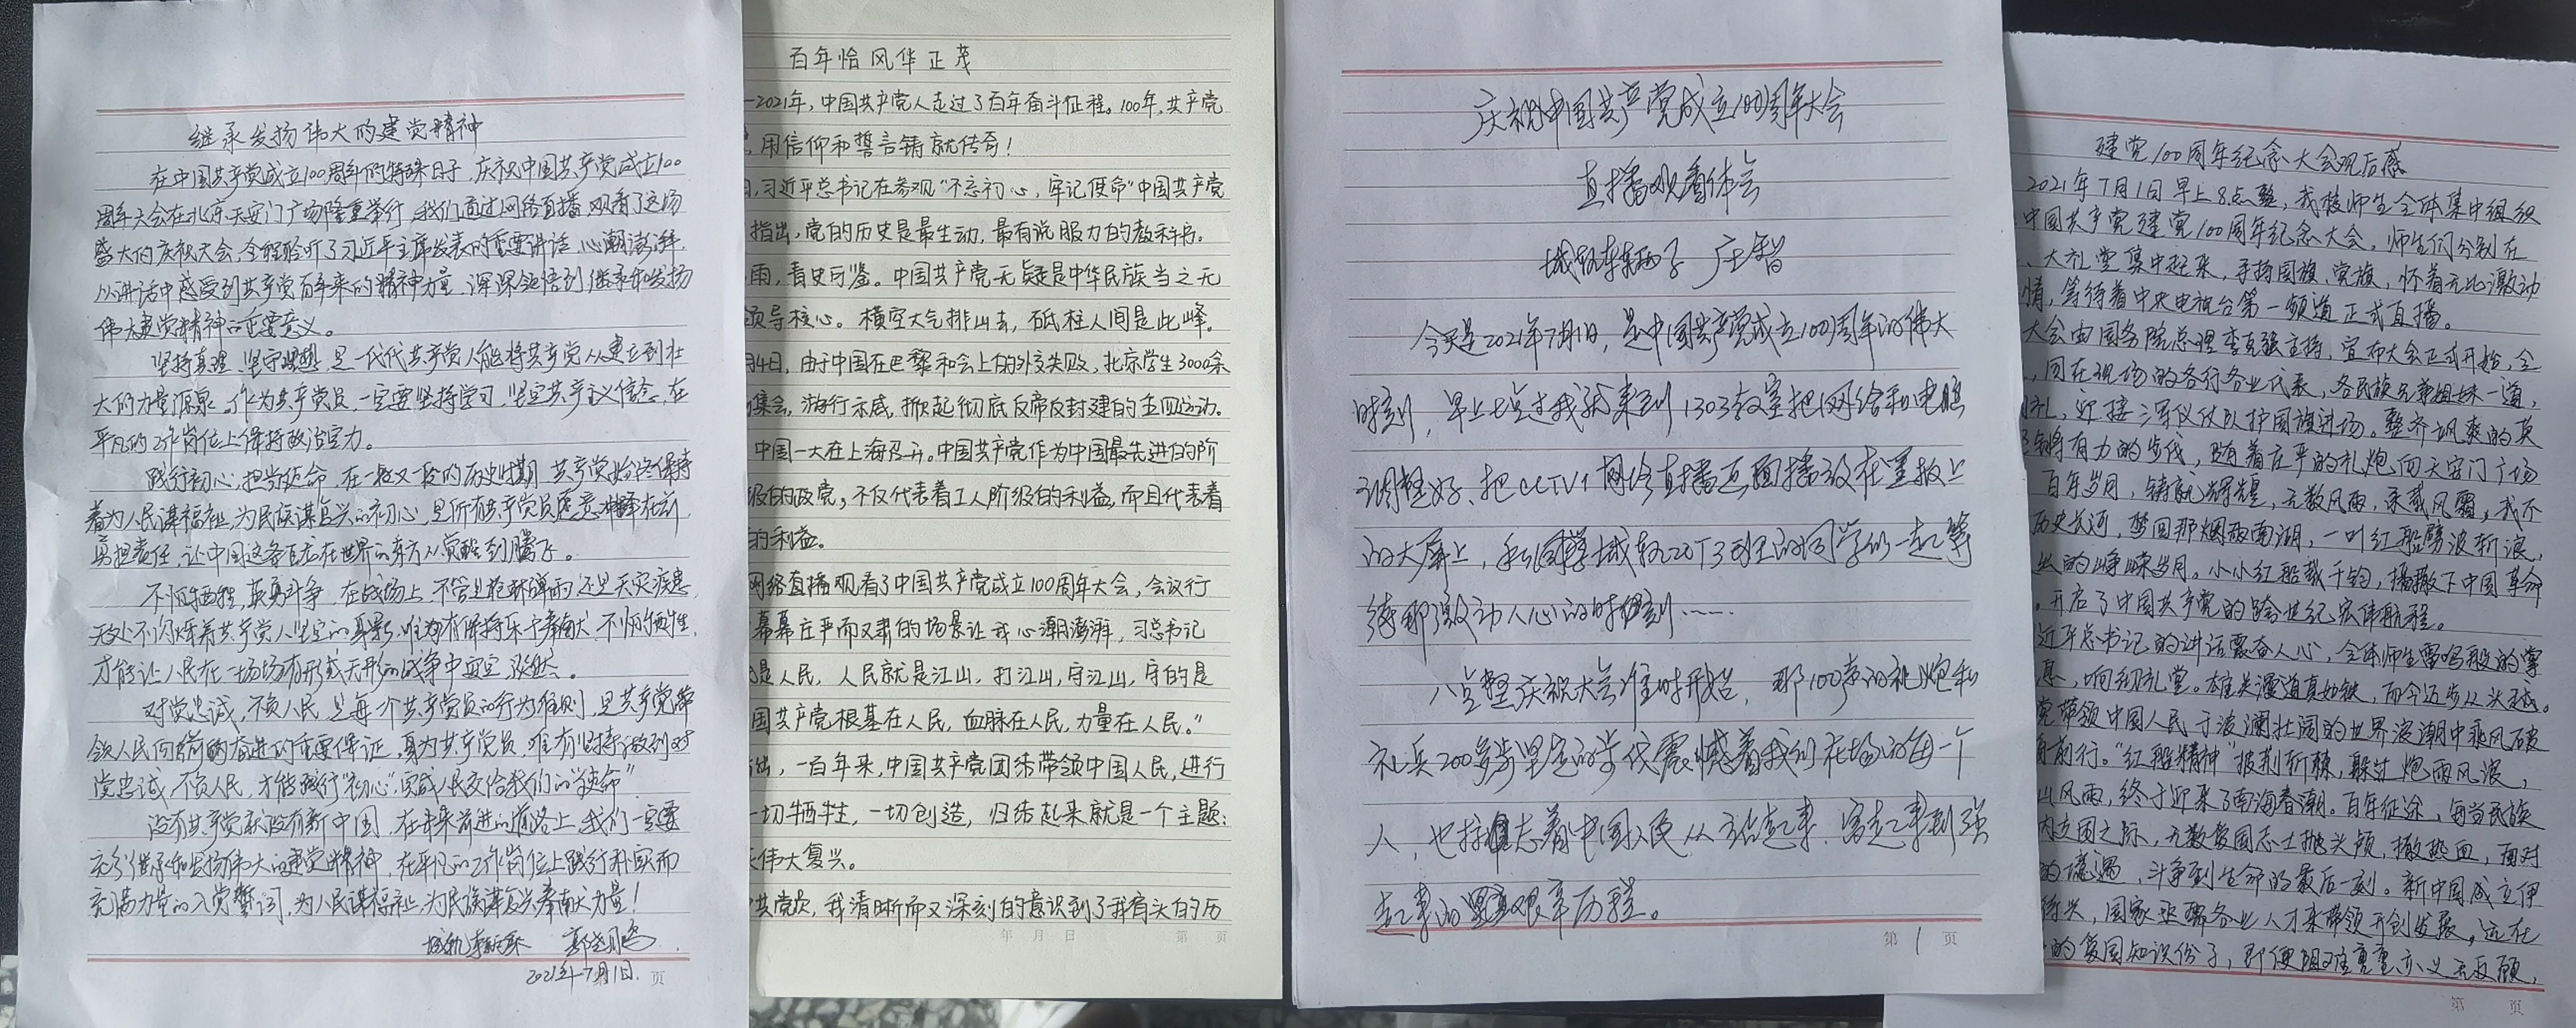 继承发扬伟大的建党精神
在中国共产党成立100周年的特殊日子，庆祝中国共产党成立100
周年大会在北京天安门广场隆重举行，我们通过网络直播，观看了这场
盛大的庆祝大会，全程聆听了习近平主席发表的重要讲话，心潮澎湃，
从讲话中感受到共产党百年来的精神力量，深深领悟到继承和发扬
伟大建党精神的重要意义。
坚持真理、坚守理想，是一代代共产党人能将共产党从建立到壮
大的力量源泉，作为共产党员，一定要坚持学习，坚定共产主义信念，在
平凡的工作岗位上保持政治定力。
践行初心，担当使命，在一段又一段的历史时期，共产党始终保持
着为人民谋福祉，为民族谋复兴的初心，是所有共产党员愿意冲锋在前，
勇担责任，让中国这条巨龙在世界的东方从觉醒到腾飞。
不怕牺牲，英勇斗争，在战场上，不管是枪林弹雨还是天灾疾患，
无处不闪烁着共产党人坚定的身影，唯有保持乐于奉献，不怕牺牲，
才能让人民在一场场有形或无形的战争中安定
对党忠诚，不负人民，是每个共产党员的行为准则，是共产党带
领人民向前奋进的重要保证，身为共产党员，唯有坚持做到对
党忠诚，不负人民，才能践行“初心”，完成人民交给我们的“使命”
没有共产党就没有新中国，在未来前进的道路上，我们一定要
充分继承和发扬伟大的建党精神，在平凡的工作岗位上践行朴实而
充满力量的入党誓词，为人民谋福祉，为民族谋复兴奉献力量！
2021年7月1日
页
百年恰风华正茂
—2021年，中国共产党人走过了百年奋斗征程。100年，共产党
，用信仰和誓言铸就传奇！
日，习近平总书记在参观“不忘初心，牢记使命”中国共产党
指出，党的历史是最生动、最有说服力的教科书。
雨，青史可鉴。中国共产党无疑是中华民族当之无
领导核心。横空大气排山去，砥柱人间是此峰。
月4日，由于中国在巴黎和会上的外交失败，北京学生3000余
集会，游行示威，掀起彻底反帝反封建的五四运动。
中国一大在上海召开。中国共产党作为中国最先进的阶
级的政党，不仅代表着工人阶级的利益，而且代表着
的利益。
网络直播观看了中国共产党成立100周年大会，会议行
幕幕庄严而又肃的场景让我心潮澎湃，习总书记
是人民，人民就是江山，打江山，守江山，守的是
国共产党根基在人民，血脉在人民，力量在人民。”
出，一百年来，中国共产党团结带领中国人民，进行
一切牺牲，一切创造，归结起来就是一个主题：
伟大复兴。
共党员，我清晰而又深刻的意识到了我肩头的历
年 月 日 第 页
庆祝中国共产党成立100周年大会
直播观看体会
今天是2021年7月1日，是中国共产党成立100周年的伟大
时刻，早上七点过我就来到1303教室把网络和电脑
调整好、把CCTV1网络直播画面播放在黑板上
的大屏上，和同学城轨20T3班的同学们一起等
待那激动人心的时刻……
八点整庆祝大会准时开始，那100声的礼炮和
礼兵200多步坚定的步伐震憾着我们在场的每一个
人，也标志着中国人民从站起来、富起来到强
起来的艰辛历程。
第 1 页
建党100周年纪念大会观后感
2021年7月1日早上8点整，我校师生全体集中组织
中国共产党建党100周年纪念大会，师生们分别在
、大礼堂集中起来，手持国旗、党旗，怀着无比激动
情，等待着中央电视台第一频道正式直播。
大会由国务院总理李克强主持，宣布大会正式开始，全
，同在现场的各行各业代表，各民族兄弟姐妹一道，
礼，迎接三军仪仗队护国旗进场。整齐飒爽的英
铿锵有力的步伐，随着庄严的礼炮向天安门广场
百年岁月，铸就辉煌，无数风雨，承载风霜，我不
历史长河，梦回那烟雨南湖，一叶红船劈波斩浪，
的峥嵘岁月。小小红船载千钧，播撒下中国革命
，开启了中国共产党的跨世纪宏伟航程。
近平总书记的讲话震奋人心，全体师生雷鸣般的掌
息，响彻礼堂。雄关漫道真如铁，而今迈步从头越。
党带领中国人民于波澜壮阔的世界浪潮中乘风破
前行。“红船精神”披荆斩棘，躲过炮雨风浪，
山风雨，终于迎来了南海春潮。百年征途，每当民族
立国之际，无数爱国志士抛头颅，撒热血，面对
的境遇，斗争到生命的最后一刻。新中国成立伊
待兴，国家亟需各业人才来带领开创发展，远在
的爱国知识份子，即便阻难重重亦义无反顾，
第 页